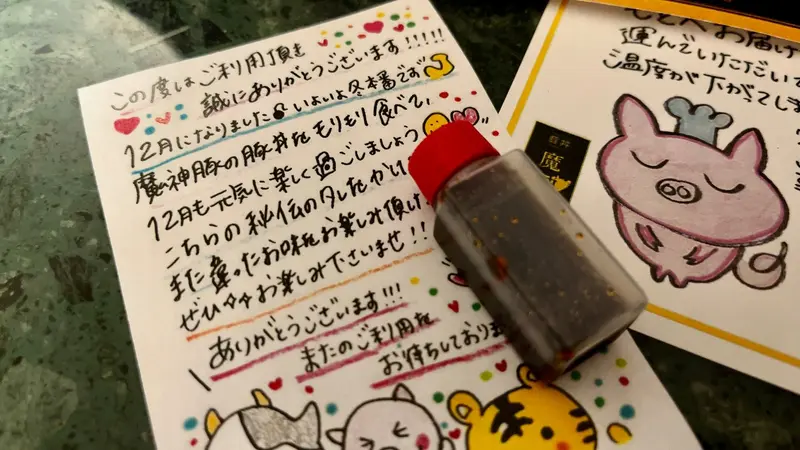 この度はご利用頂き
誠にありがとうございます!!!!!
12月になりました いよいよ冬本番です
魔神豚の豚丼をもりもり食べて、
12月も元気に楽しく過ごしましょう
こちらの秘伝のタレたかい
また違ったお味をお楽しみ頂け
ぜひお楽しみ下さいませ!!
ありがとうございます!!!
またのご利用を
お待ちしており
お届け
運んでいただいて
ご温度が下がってしま
豚丼
魔